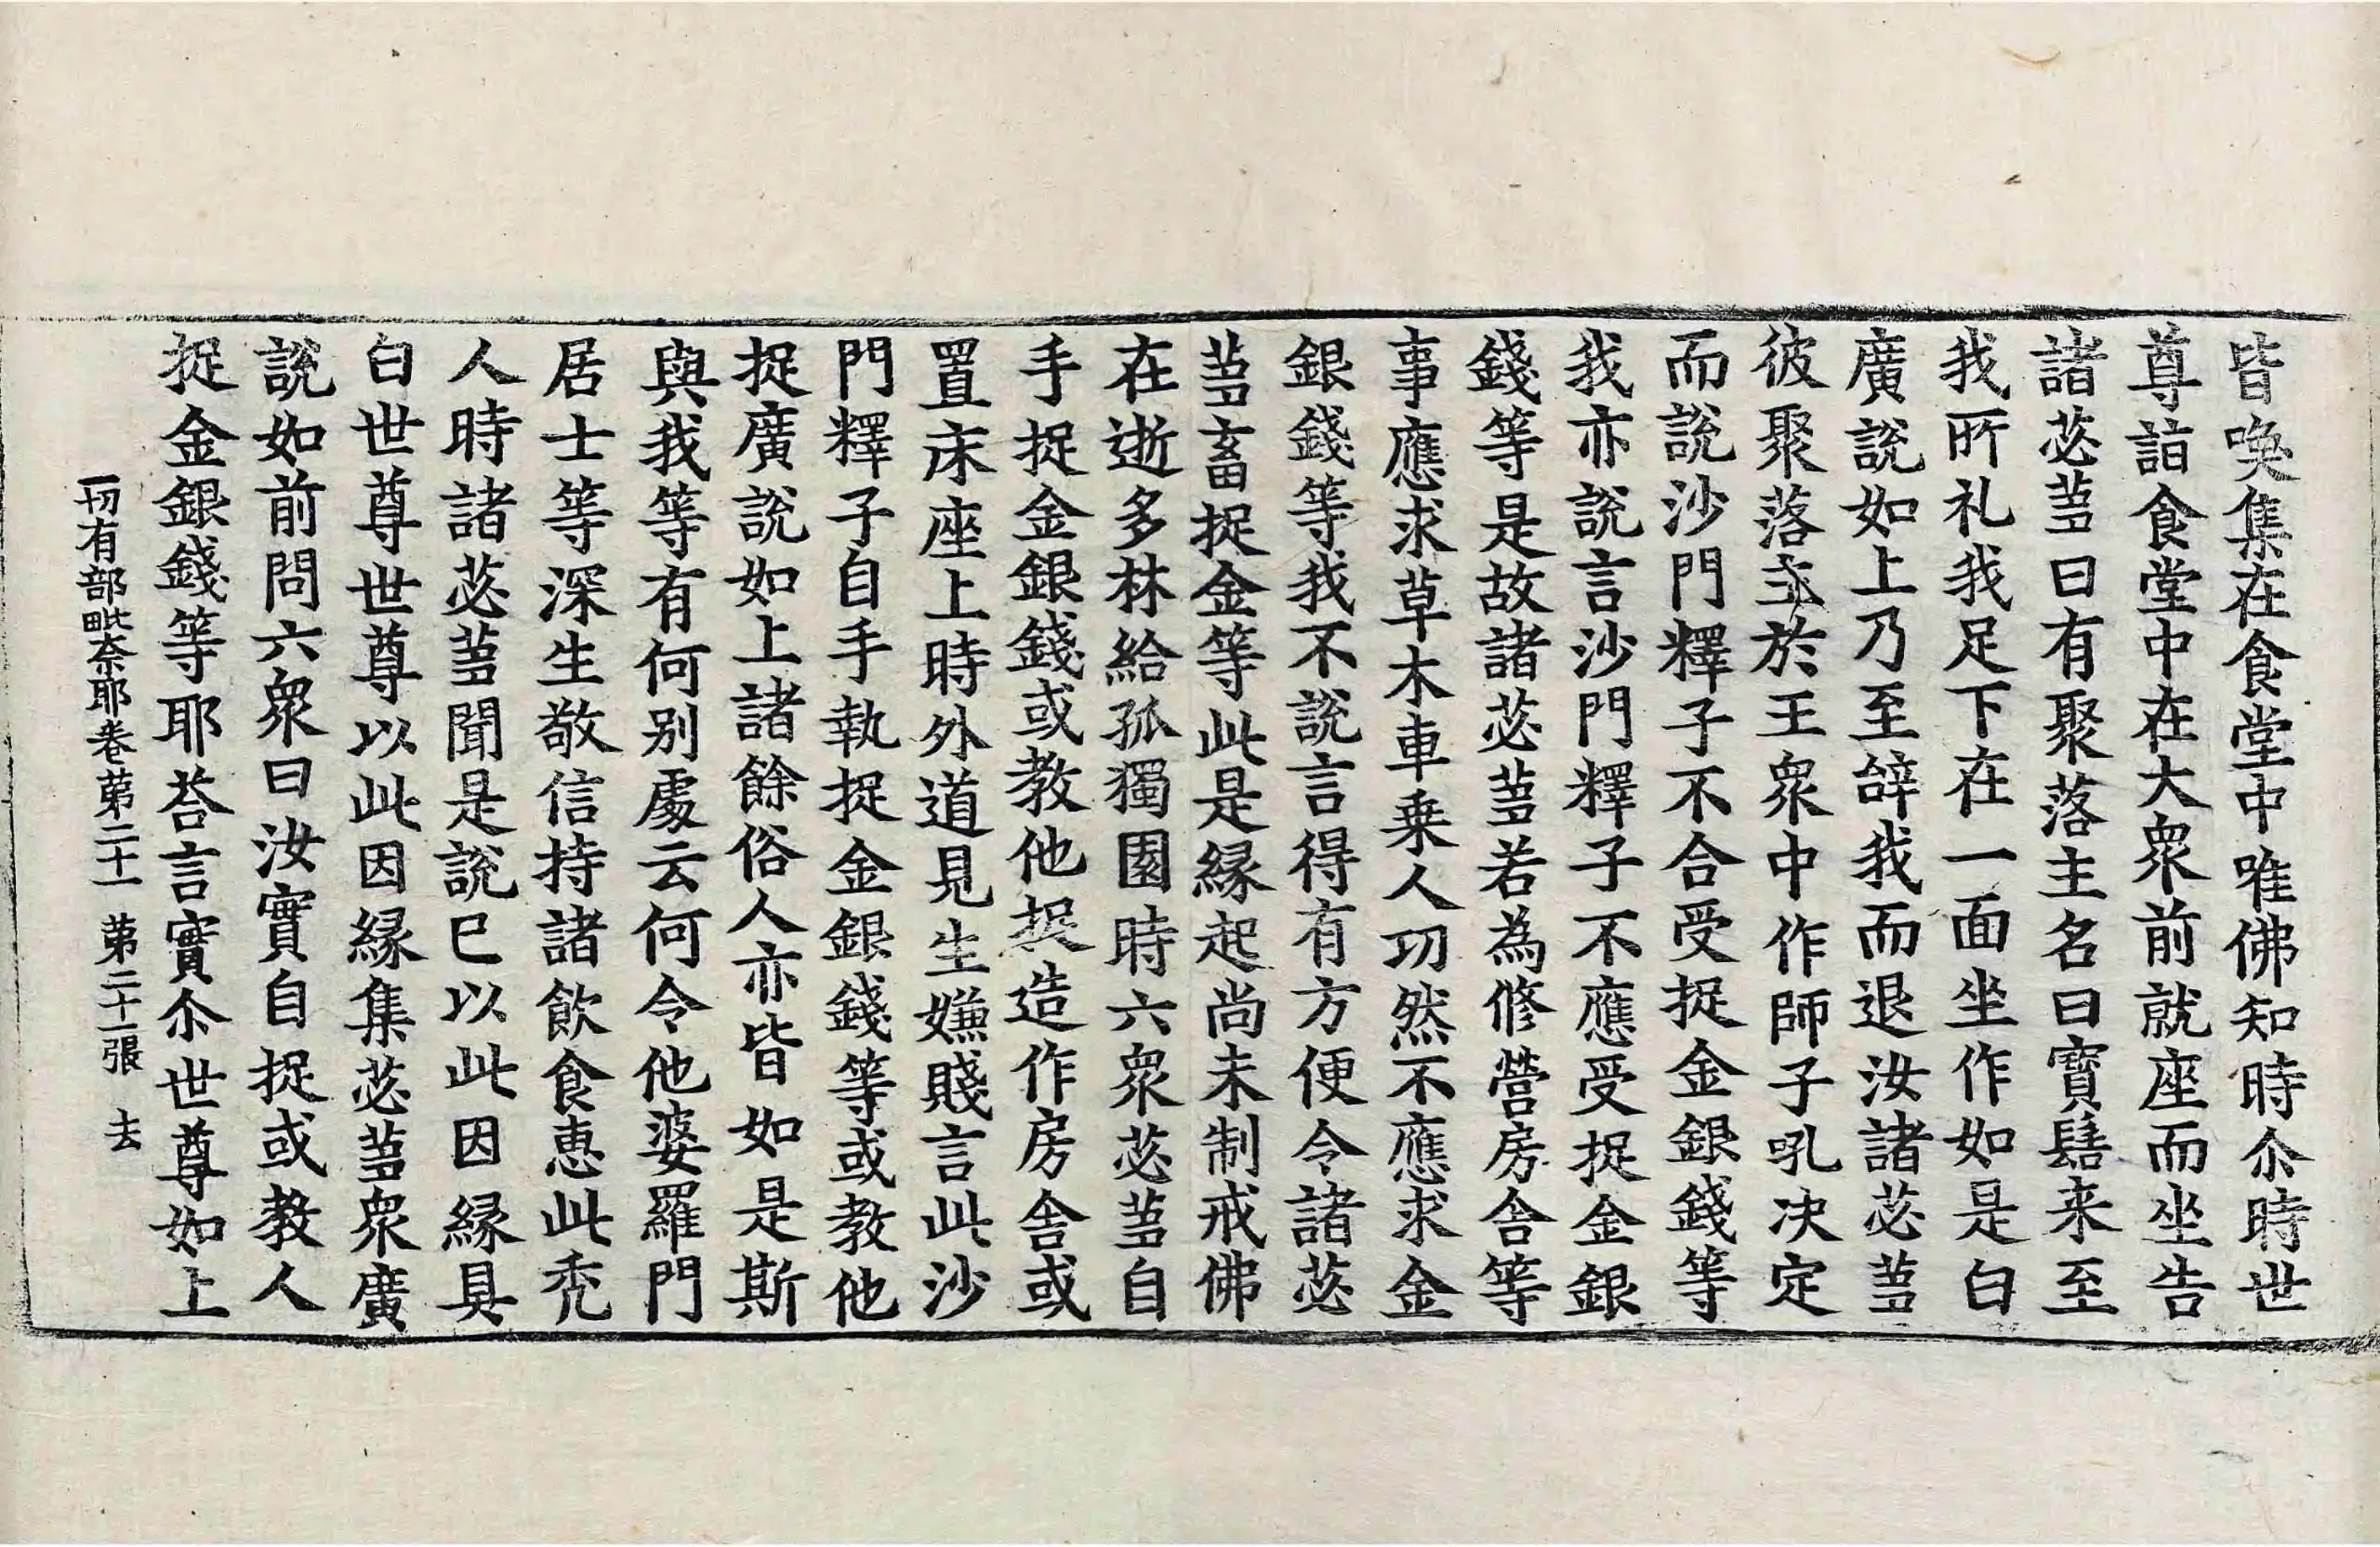 皆喚集在食堂中唯佛知時尒時世
尊詣食堂中在大眾前就座而坐告
諸苾芻曰有聚落主名曰寳髻来至
我所礼我足下在一面坐作如是白
廣說如上乃至辝我而退汝諸苾芻
彼聚落主於王眾中作師子吼决定
而說沙門釋子不合受捉金銀錢等
我亦說言沙門釋子不應受捉金銀
錢等是故諸苾芻若為修營房舍等
事應求草木車乗人功然不應求金
銀錢等我不說言得有方便令諸苾
芻畜捉金等此是縁起尚未制戒佛
在逝多林給孤獨園時六眾苾芻自
手捉金銀錢或教他捉造作房舍或
置床座上時外道見生嫌賤言此沙
門釋子自手執捉金銀錢等或教他
捉廣說如上諸餘俗人亦皆如是斯
與我等有何别處云何令他婆羅門
居士等深生敬信持諸飲食惠此秃
人時諸苾芻聞是說已以此因縁具
白世尊世尊以此因縁集苾芻眾廣
說如前問六眾曰汝實自捉或教人
捉金銀錢等耶荅言實尒世尊如上
一切有部毗奈耶卷苐二十一 苐二十一張 去